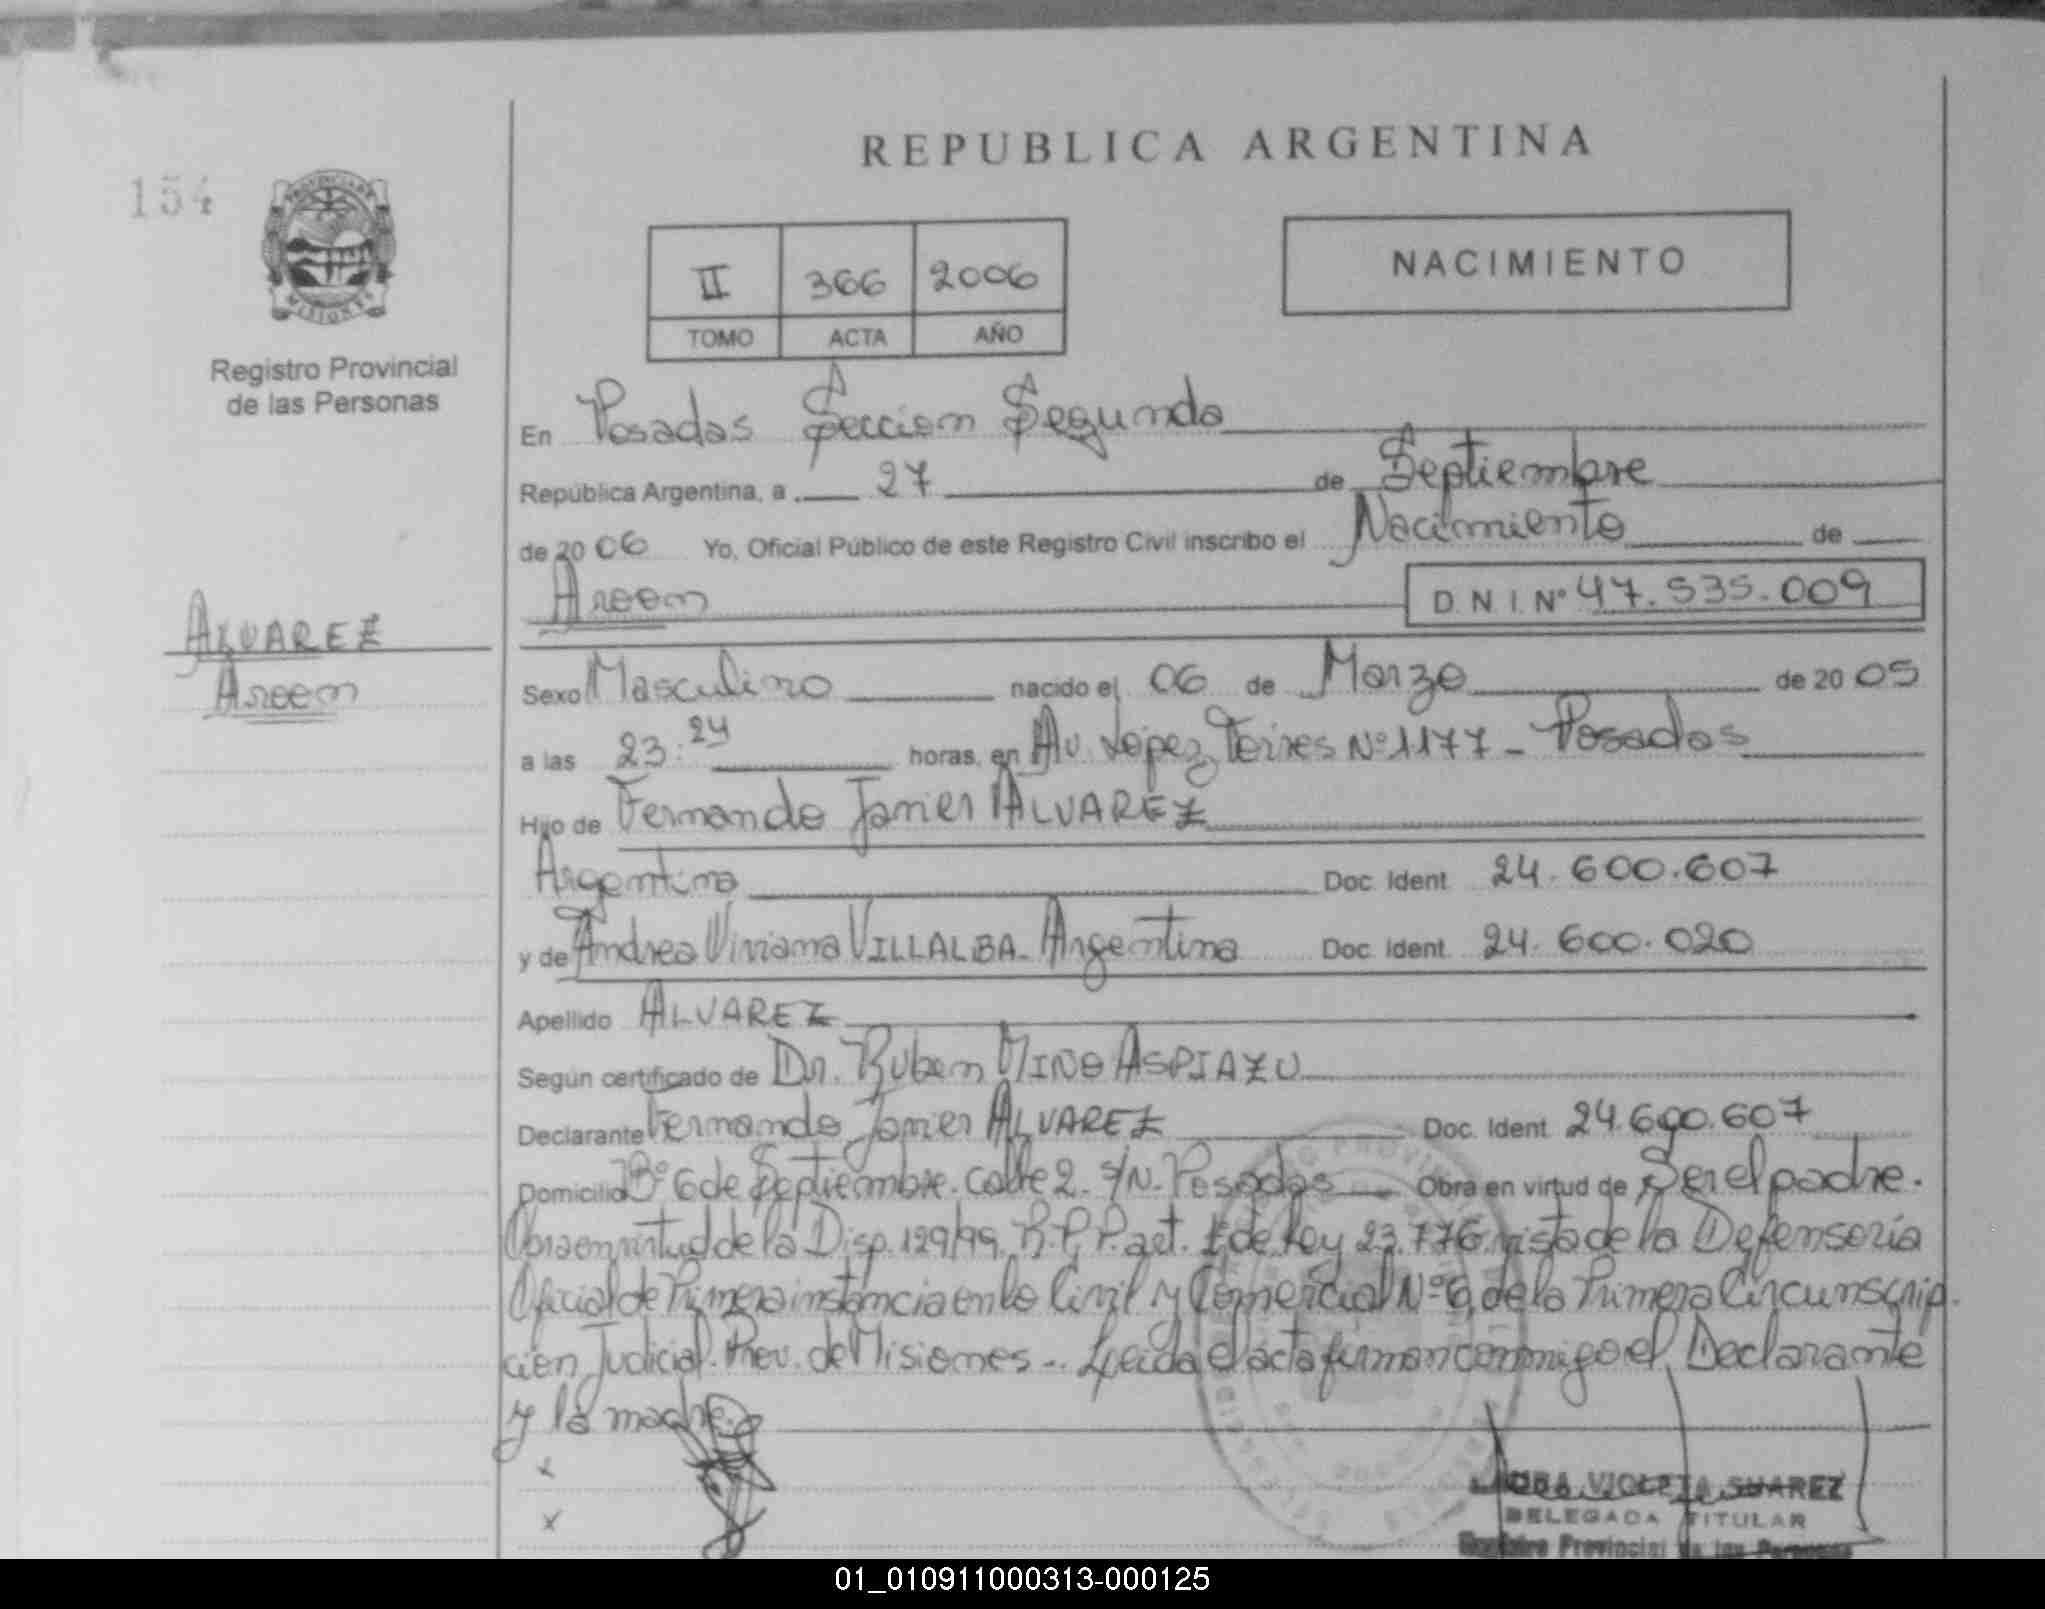 REPUBLICA ARGENTINA
154
PROVINCIA DE
MISIONES
II 366 2006
TOMO ACTA AÑO
NACIMIENTO
Registro Provincial
de las Personas
En Posadas Seccion Segunda
República Argentina, a 27 de Septiembre
de 2006 Yo, Oficial Público de este Registro Civil inscribo el Nacimiento de
Aroon D.N.I. Nº 47.535.009
ALVAREZ
Sexo Masculino nacido el 06 de Marzo de 2005
a las 23:24 horas, en Av. Lopez Torres Nº 1177 - Posadas
Hijo de Fernando Javier ALVAREZ
Argentina Doc. Ident 24.600.607
y de Andrea Viviana VILLALBA - Argentina Doc. Ident. 24.600.020
Apellido ALVAREZ
Según certificado de Dr. Ruben MINO ASPIAZU
Declarante Fernando Javier ALVAREZ Doc. Ident 24.600.607
Domicilio Bº 6 de Septiembre. Calle 2. S/N. Posadas Obra en virtud de Ser el padre.
Obra en virtud de la Disp. 129/99. R.P.P. art. de Ley 23.776 vista de la Defensoria
Oficial de Primera instancia en lo Civil y Comercial Nº 6 de la Primera Circunscrip-
cion Judicial. Prov. de Misiones -. Leida el acta firman conmigo el Declarante
y la madre.
x
x
VIOLETA SUAREZ
DELEGADA TITULAR
Registro Provincial de las Personas
01_010911000313-000125